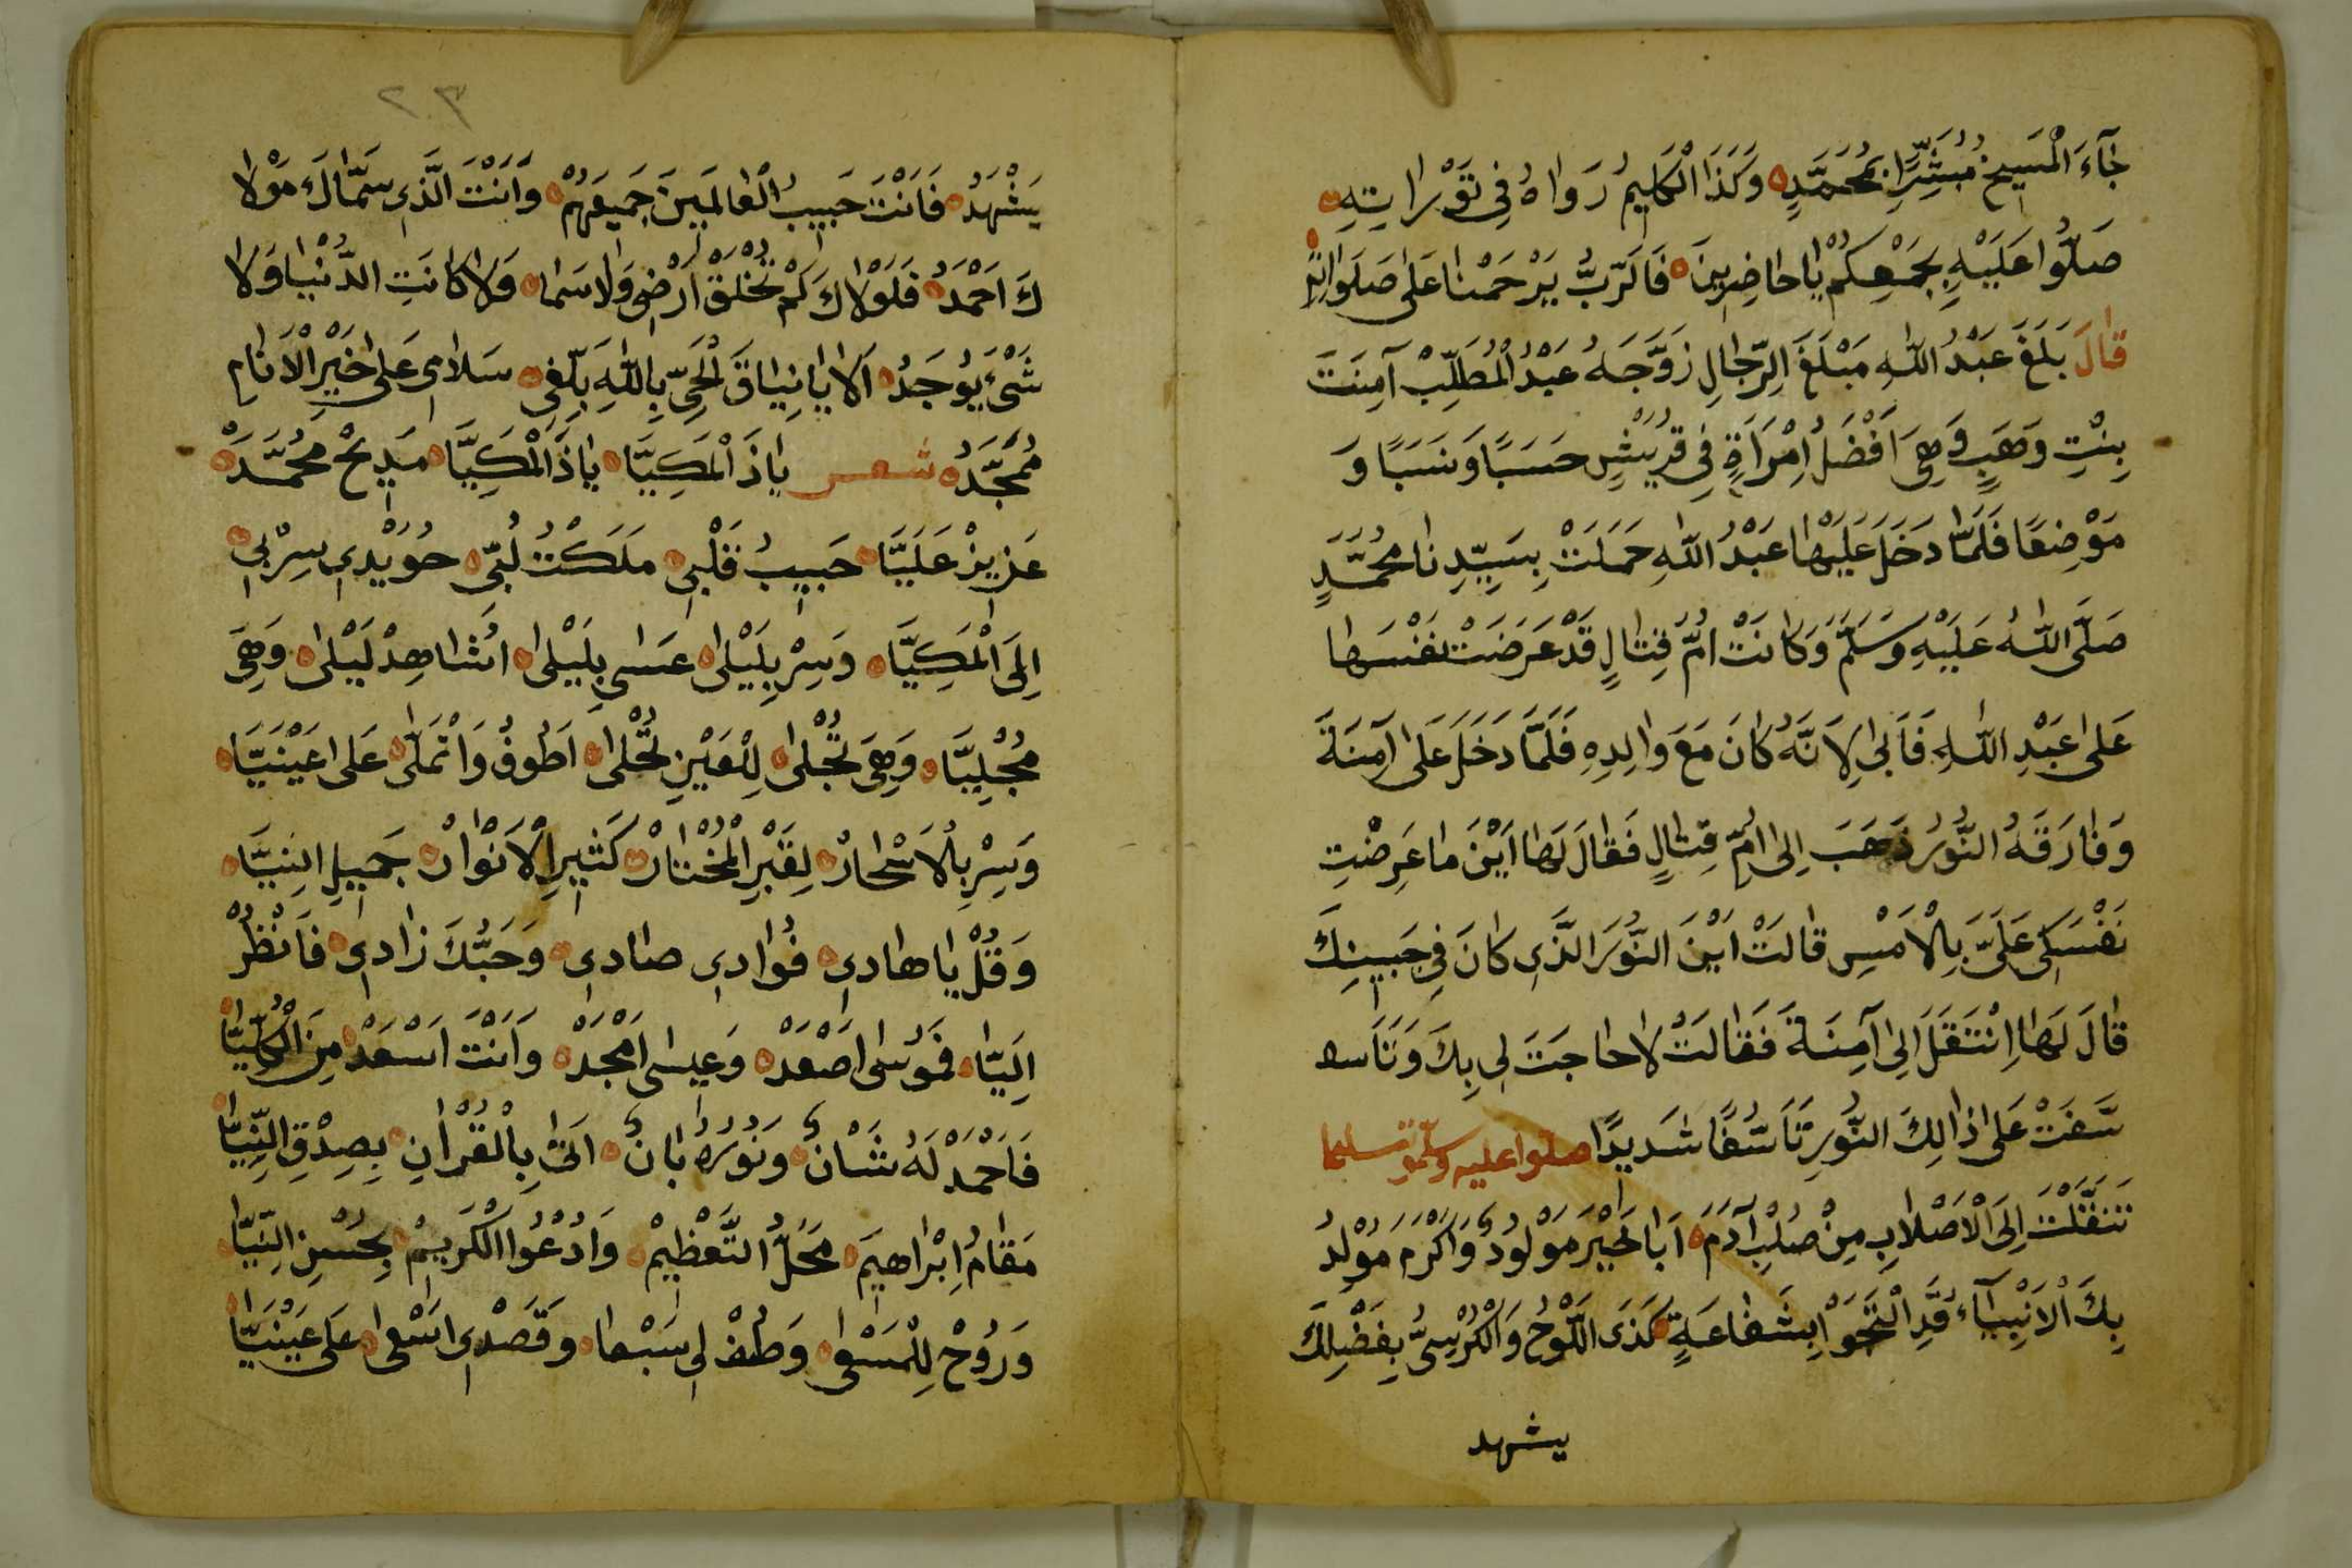 جَآءَ الْمَسِيحُ مُبَشِّرًا بِمُحَمَّدٍ وَكَذَا الْكَلِيمُ رَوَاهُ فِي تَوْرَاتِهِ
صَلُّوا عَلَيْهِ بِجَمْعِكُمْ يَا حَاضِرِينَ فَالرَّبُّ يَرْحَمْنَا عَلَى صَلَوَاتِهِ
قَالَ بَلَغَ عَبْدُ اللهِ مَبْلَغَ الرِّجَالِ زَوَّجَهُ عَبْدُ الْمُطَلِّبْ آمِنَتَ
بِنْتِ وَهَبٍ وَهِيَ اَفْضَلُ اِمْرَاَةٍ فِي قُرَيْشٍ حَسَبًا وَنَسَبًا وَ
مَوْضِعًا فَلَمَّا دَخَلَ عَلَيْهَا عَبْدُ اللهِ حَمَلَتْ بِسَيِّدِنَا مُحَمَّدٍ
صَلَّى اللهُ عَلَيْهِ وَسَلَّمَ وَكَانَتْ اُمُّ قِتَالٍ قَدْ عَرَضَتْ نَفْسَهَا
عَلَى عَبْدِ اللهِ فَاَبَى لِاَنَّهُ كَانَ مَعَ وَالِدِهِ فَلَمَّا دَخَلَ عَلَى آمِنَةَ
وَفَارَقَهُ النُّورُ ذَهَبَ اِلَى اُمِّ قِتَالٍ فَقَالَ لَهَا اَيْنَ مَا عَرِضْتِ
نَفْسَكِى عَلَىَّ بِالْاَمْسِ قَالَتْ اَيْنَ النُّورَ الَّذِى كَانَ فِي جَبِينِكَ
قَالَ لَهَا اِنْتَقَلَ اِلَى آمِنَةَ فَقَالَتْ لَا حَاجَتَ لِى بِكَ وَتَاَسـ
سَّفَتْ عَلَى ذَالِكَ النُّورِ تَاَسُّفًا شَدِيدًا صلوا عليه وسلموا تسليما
تَنَقَّلْتَ اِلَى الْاَصْلَابِ مِنْ صُلْبِ آدَمَ اَبَا خَيْرَ مَوْلُودٌ وَاَكْرَمَ مَوْلِدُ
بِكَ الْاَنْبِيَآءُ قَدِ الْتَجَوْا بِشَفَاعَةٍ كَذَى اللَّوْحُ وَالْكُرْسِىُّ بِفَضْلِكَ
يشهد
٢٣
يَشْهَدُ فَاَنْتَ حَبِيبُ الْعَالَمِينَ جَمِيعَهُمْ وَاَنْتَ الَّذِى سَمَّاكَ مَوْلَا
كَ اَحْمَدُ فَلَوْلَاكَ لَمْ تُخْلَقْ اَرْضِى وَلَا سَمَا وَلَا كَانَتِ الدُّنْيَا وَلَا
شَىْءٌ يُوجَدُ اَلَا يَا نِيَاقَ الْحَىِّ بِاللهِ بَلِّغِى سَلَامِى عَلَى خَيْرِ الْاَنَامِ
مُمَجَّدُ شعر يَاذَ الْمَكِيَّا يَاذَ الْمَكِيَّا مَدِيحْ مُحَمَّدْ
عَزِيزْ عَلَيَّا حَبِيبُ قَلْبِى مَلَكْتُ لُبِّى حُوَيْدِى سِرْبِى
اِلَى الْمَكِيَّا وَسِرْ بِلَيْلَى عَسَى بِلَيْلَى اُشَاهِدْ لَيْلَى وَهِىَ
مُجْلِيَّا وَهِىَ تُجْلَى لِلْعَيْنِ تُحْلَى اَطُوفْ وَاَتْمَلَّى عَلَى عَيْنَيَّا
وَسِرْ بِالْاَسْحَارْ لِقَبْرِ الْمُخْتَارْ كَثِيرِ الْاَنْوَارْ جَمِيلِ النِيَّا
وَقُلْ يَا هَادِى فُوَادِى صَادِى وَحُبُّكَ زَادِى فَانْظُرْ
اِلَيَّا فَمُوسَى اَصْعَدْ وَعِيسَى اَمْجَدْ وَاَنْتَ اَسْعَدْ مِنَ الْكُلِّيَّا
فَاَحْمَدْ لَهُ شَانٌ وَنُورُهُ بَانٌ اَتَى بِالْقُرْآنِ بِصِدْقِ النِّيَّا
مَقَامُ اِبْرَاهِيمَ مَحَلُّ التَّعْظِيمْ وَادْعُوا الْكَرِيمْ بِحُسْنِ النِّيَّا
وَرُوحْ لِلْمَسْعَى وَطُفْ لِى سَبْعَا وَقَصْدِى اَسْعَى عَلَى عَيْنَيَّا